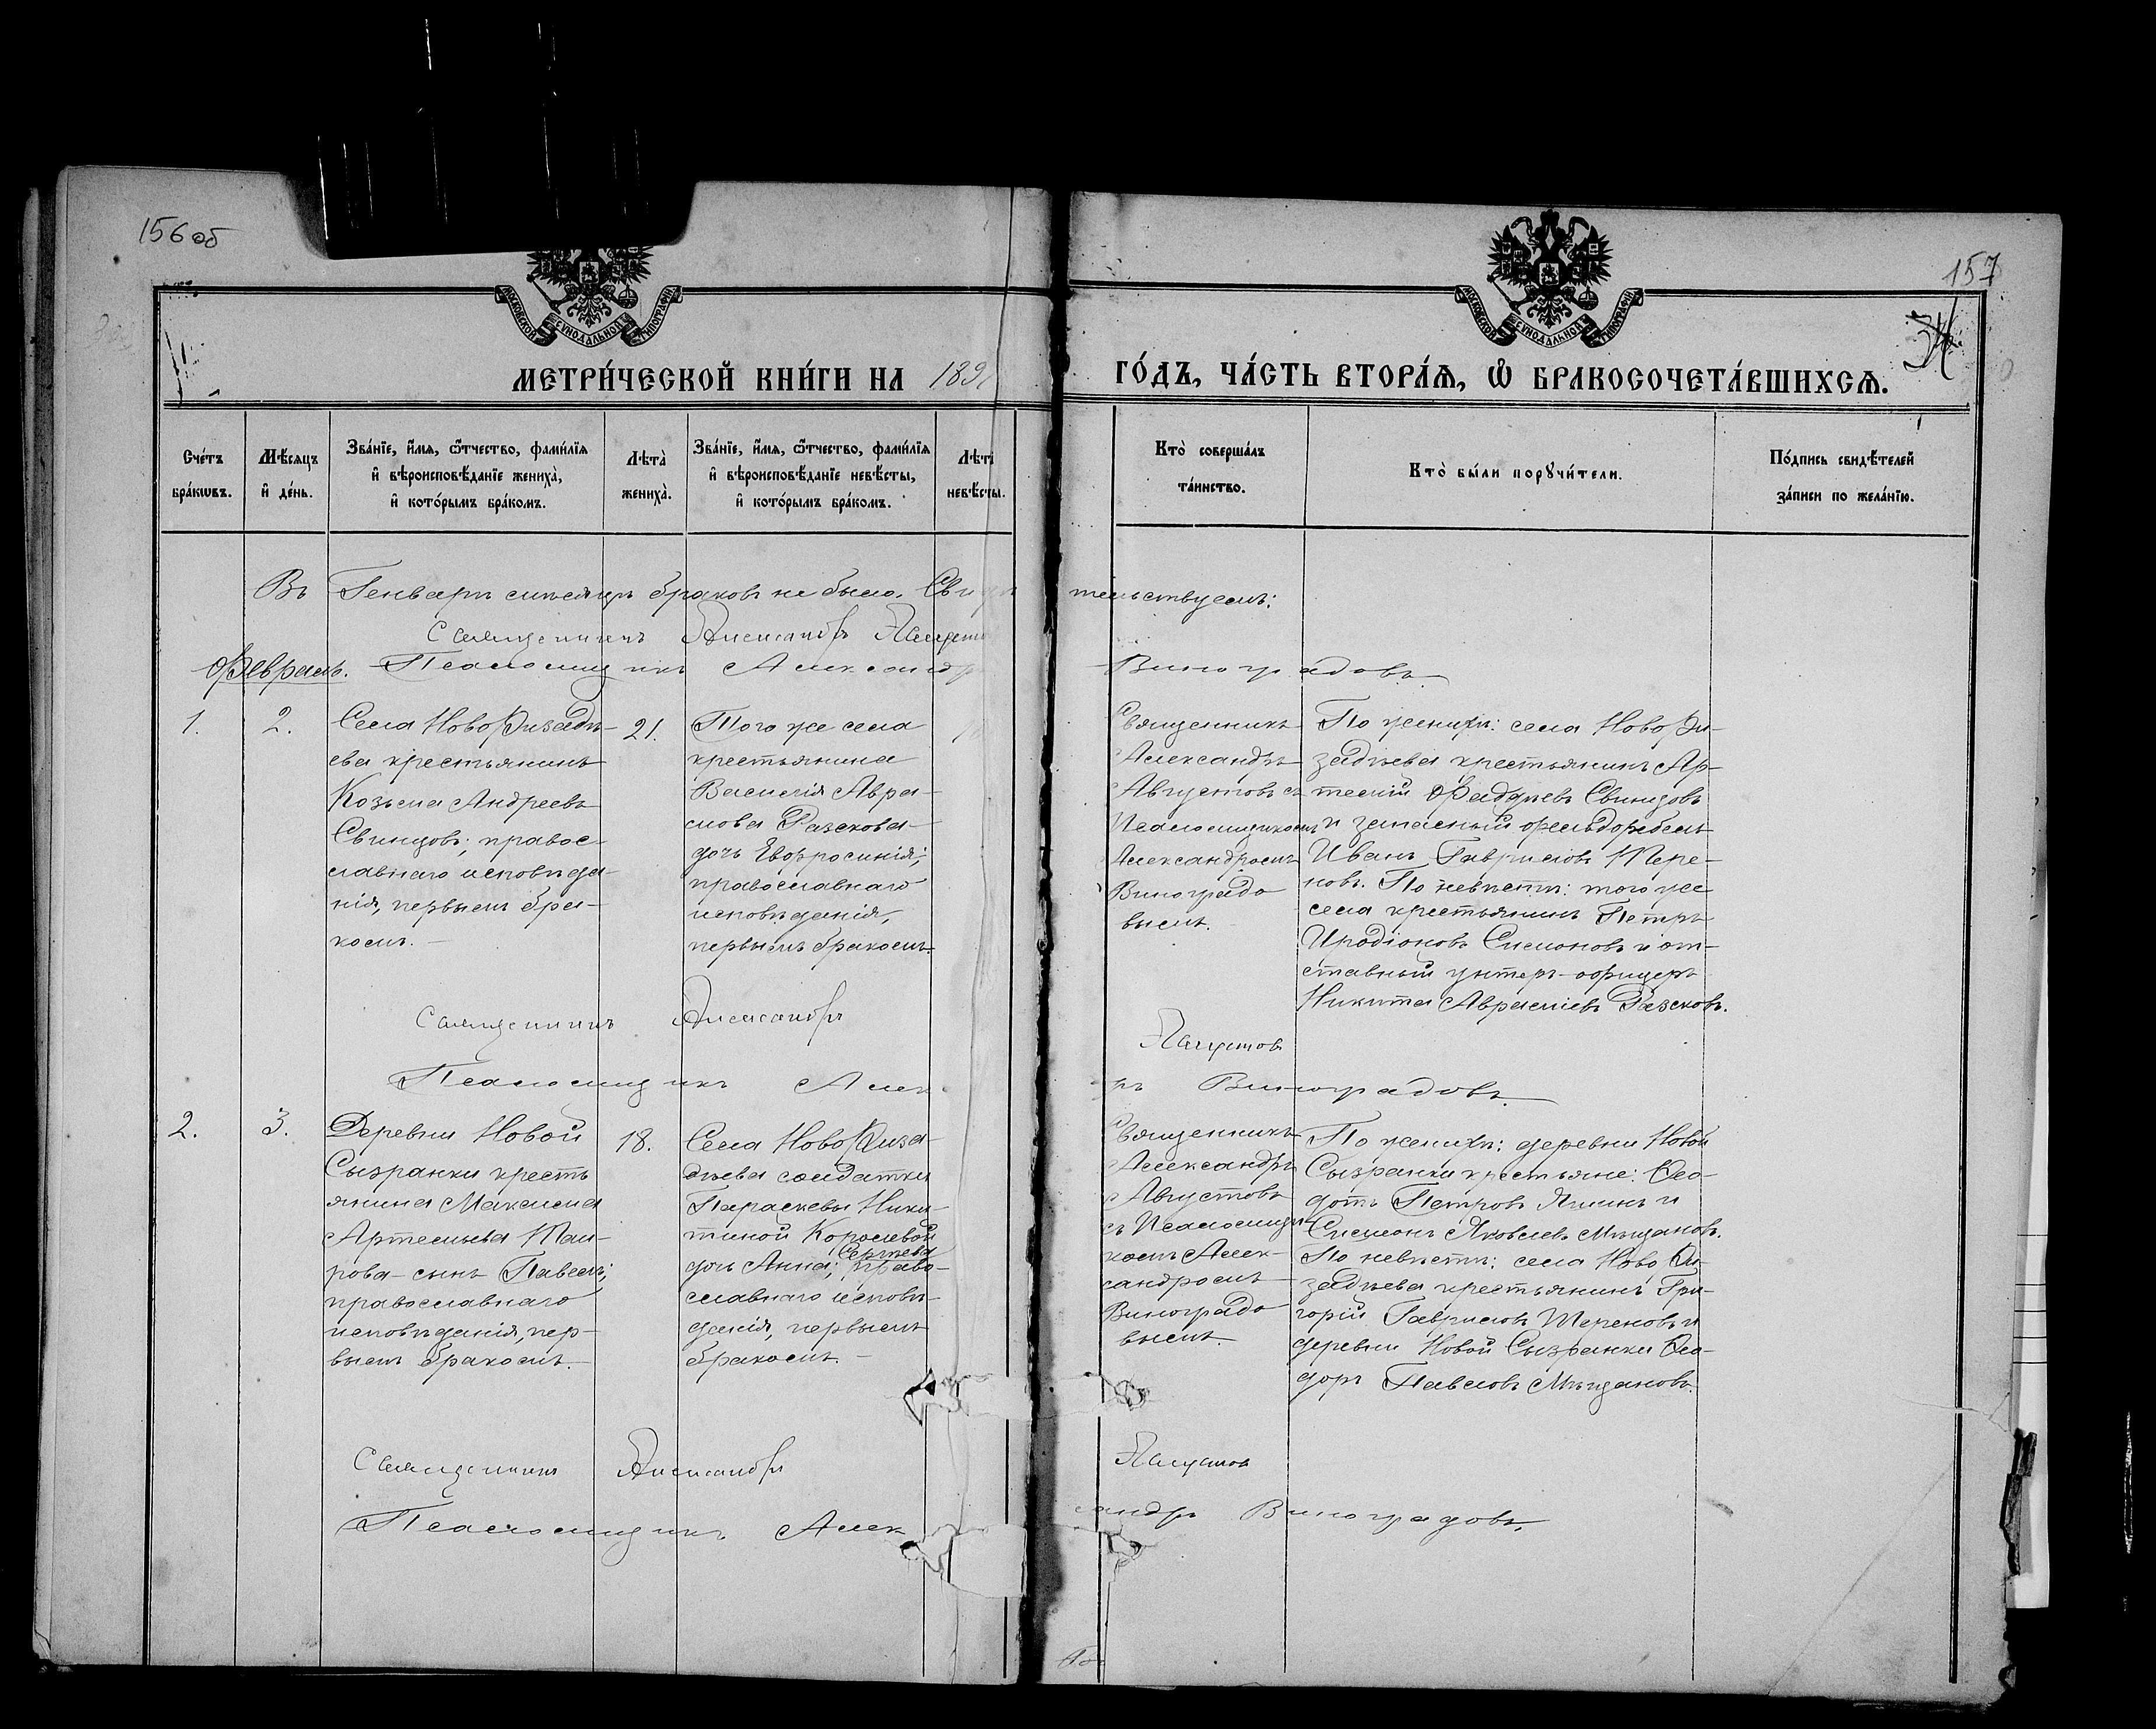 156 об
157
МОСКОВСКОЙ СѴНОДАЛЬНОЙ ТИПОГРАФІИ
МОСКОВСКОЙ СѴНОДАЛЬНОЙ ТИПОГРАФІИ
МЕТРИ́ЧЕСКОЙ КНИ́ГИ НА 189
ГО́ДЪ, ЧА́СТЬ ВТОРА́Ѧ, Ѡ҆ БРАКОСОЧЕТА́ВШИХСѦ.
Сче́тъ
бра́кѡвъ.
Мѣ́сяцъ
и҆ де́нь.
Зва́нїе, и҆́мѧ, ѻ҆́тчество, фами́лїѧ
и҆ вѣроисповѣ́данїе жениха̀,
и҆ кото́рымъ бра́комъ.
Лѣта̀
жениха̀.
Зва́нїе, и҆́мѧ, ѻ҆́тчество, фами́лїѧ
и҆ вѣроисповѣ́данїе невѣ́сты,
и҆ кото́рымъ бра́комъ.
Лѣта̀
невѣ́сты.
Кто̀ соверша́лъ
та́инство.
Кто̀ бы́ли порꙋчи́тели.
По́дпись свидѣ́телей
за́писи по жела́нїю.
Въ Генварѣ мѣсяцѣ браковъ не было. Свидѣтельствуемъ:
Священникъ Александръ Августов
Февраль. Псаломщикъ Александръ Виноградовъ
1.
2.
Села Ново Ризадѣ-
ева крестьянинъ
Козьма Андреевъ
Свинцовъ; правос-
лавнаго исповѣда-
нія, первымъ бра-
комъ.
21.
Того же села
крестьянина
Василія Авра-
мова Разскова
дочь Евфросинія;
православнаго
исповѣданія,
первымъ бракомъ.
Священникъ
Александръ
Августовъ съ
Псаломщикомъ
Александромъ
Виноградо
вымъ.
По женихѣ: села Ново Ри-
задѣева крестьянинъ Ар-
темій Фаддѣевъ Свинцовъ
и запасный фельдфебель
Иванъ Гавриловъ Шере-
новъ. По невѣстѣ: того же
села крестьянинъ Петръ
Иродіоновъ Симоновъ и от-
ставный унтеръ-офицеръ
Никита Авраміевъ Разсковъ.
Священникъ Александръ Августов
Псаломщикъ Алек ръ Виноградовъ.
2.
3.
Деревни Новой
Сызранки кресть
янина Максима
Артемьева Шаи-
рова сынъ Павелъ;
православнаго
исповѣданія, пер-
вымъ бракомъ.
18.
Села Ново Риза-
дѣева солдатки
Параскевы Ники-
тиной Королевой
Сергѣева
дочь Анна; право-
славнаго исповѣ-
данія, первымъ
бракомъ.
Священникъ
Александръ
Августовъ
съ Псаломщи
комъ Алек-
сандромъ
Виноградо
вымъ.
По женихѣ: деревни Новой
Сызранки крестьяне: Ѳео-
дотъ Петровъ Яшинъ и
Симеонъ Яковлевъ Мѣщановъ.
По невѣстѣ: села Ново Ри-
задѣева крестьянинъ Гри-
горій Гавриловъ Шереновъ и
деревни Новой Сызранки Ѳео-
доръ Павловъ Мѣщановъ.
Священникъ Александръ Августов
Псаломщикъ Александръ Виноградовъ.